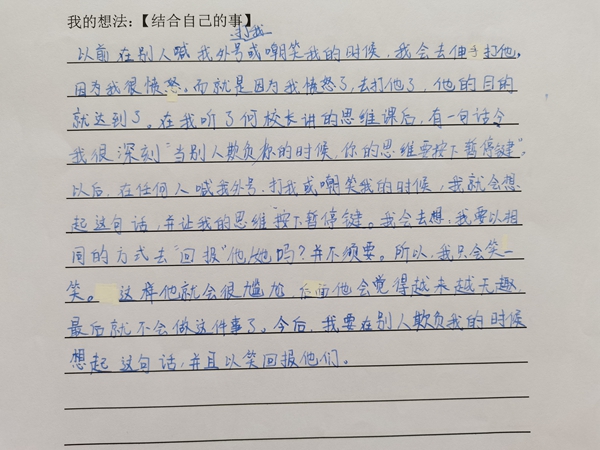 我的想法：【结合自己的事】
打我
以前在别人喊我外号或嘲笑我的时候，我会去伸手打他。
因为我很愤怒。而就是因为我愤怒了，去打他了，他的目的
就达到了。在我听了何校长讲的思维课后，有一句话令
我很深刻“当别人欺负你的时候，你的思维要按下暂停键”，
以后，在任何人喊我外号，打我或嘲笑我的时候，我就会想
起这句话，并让我的思维“按下暂停键。我会去想，我要以相
同的方式去“回报”他/她吗？并不须要。所以，我只会笑一
笑。这样他就会很尴尬，他会觉得越来越无趣，
最后就不会做这件事了。今后，我要在别人欺负我的时候
想起这句话，并且以笑回报他们。